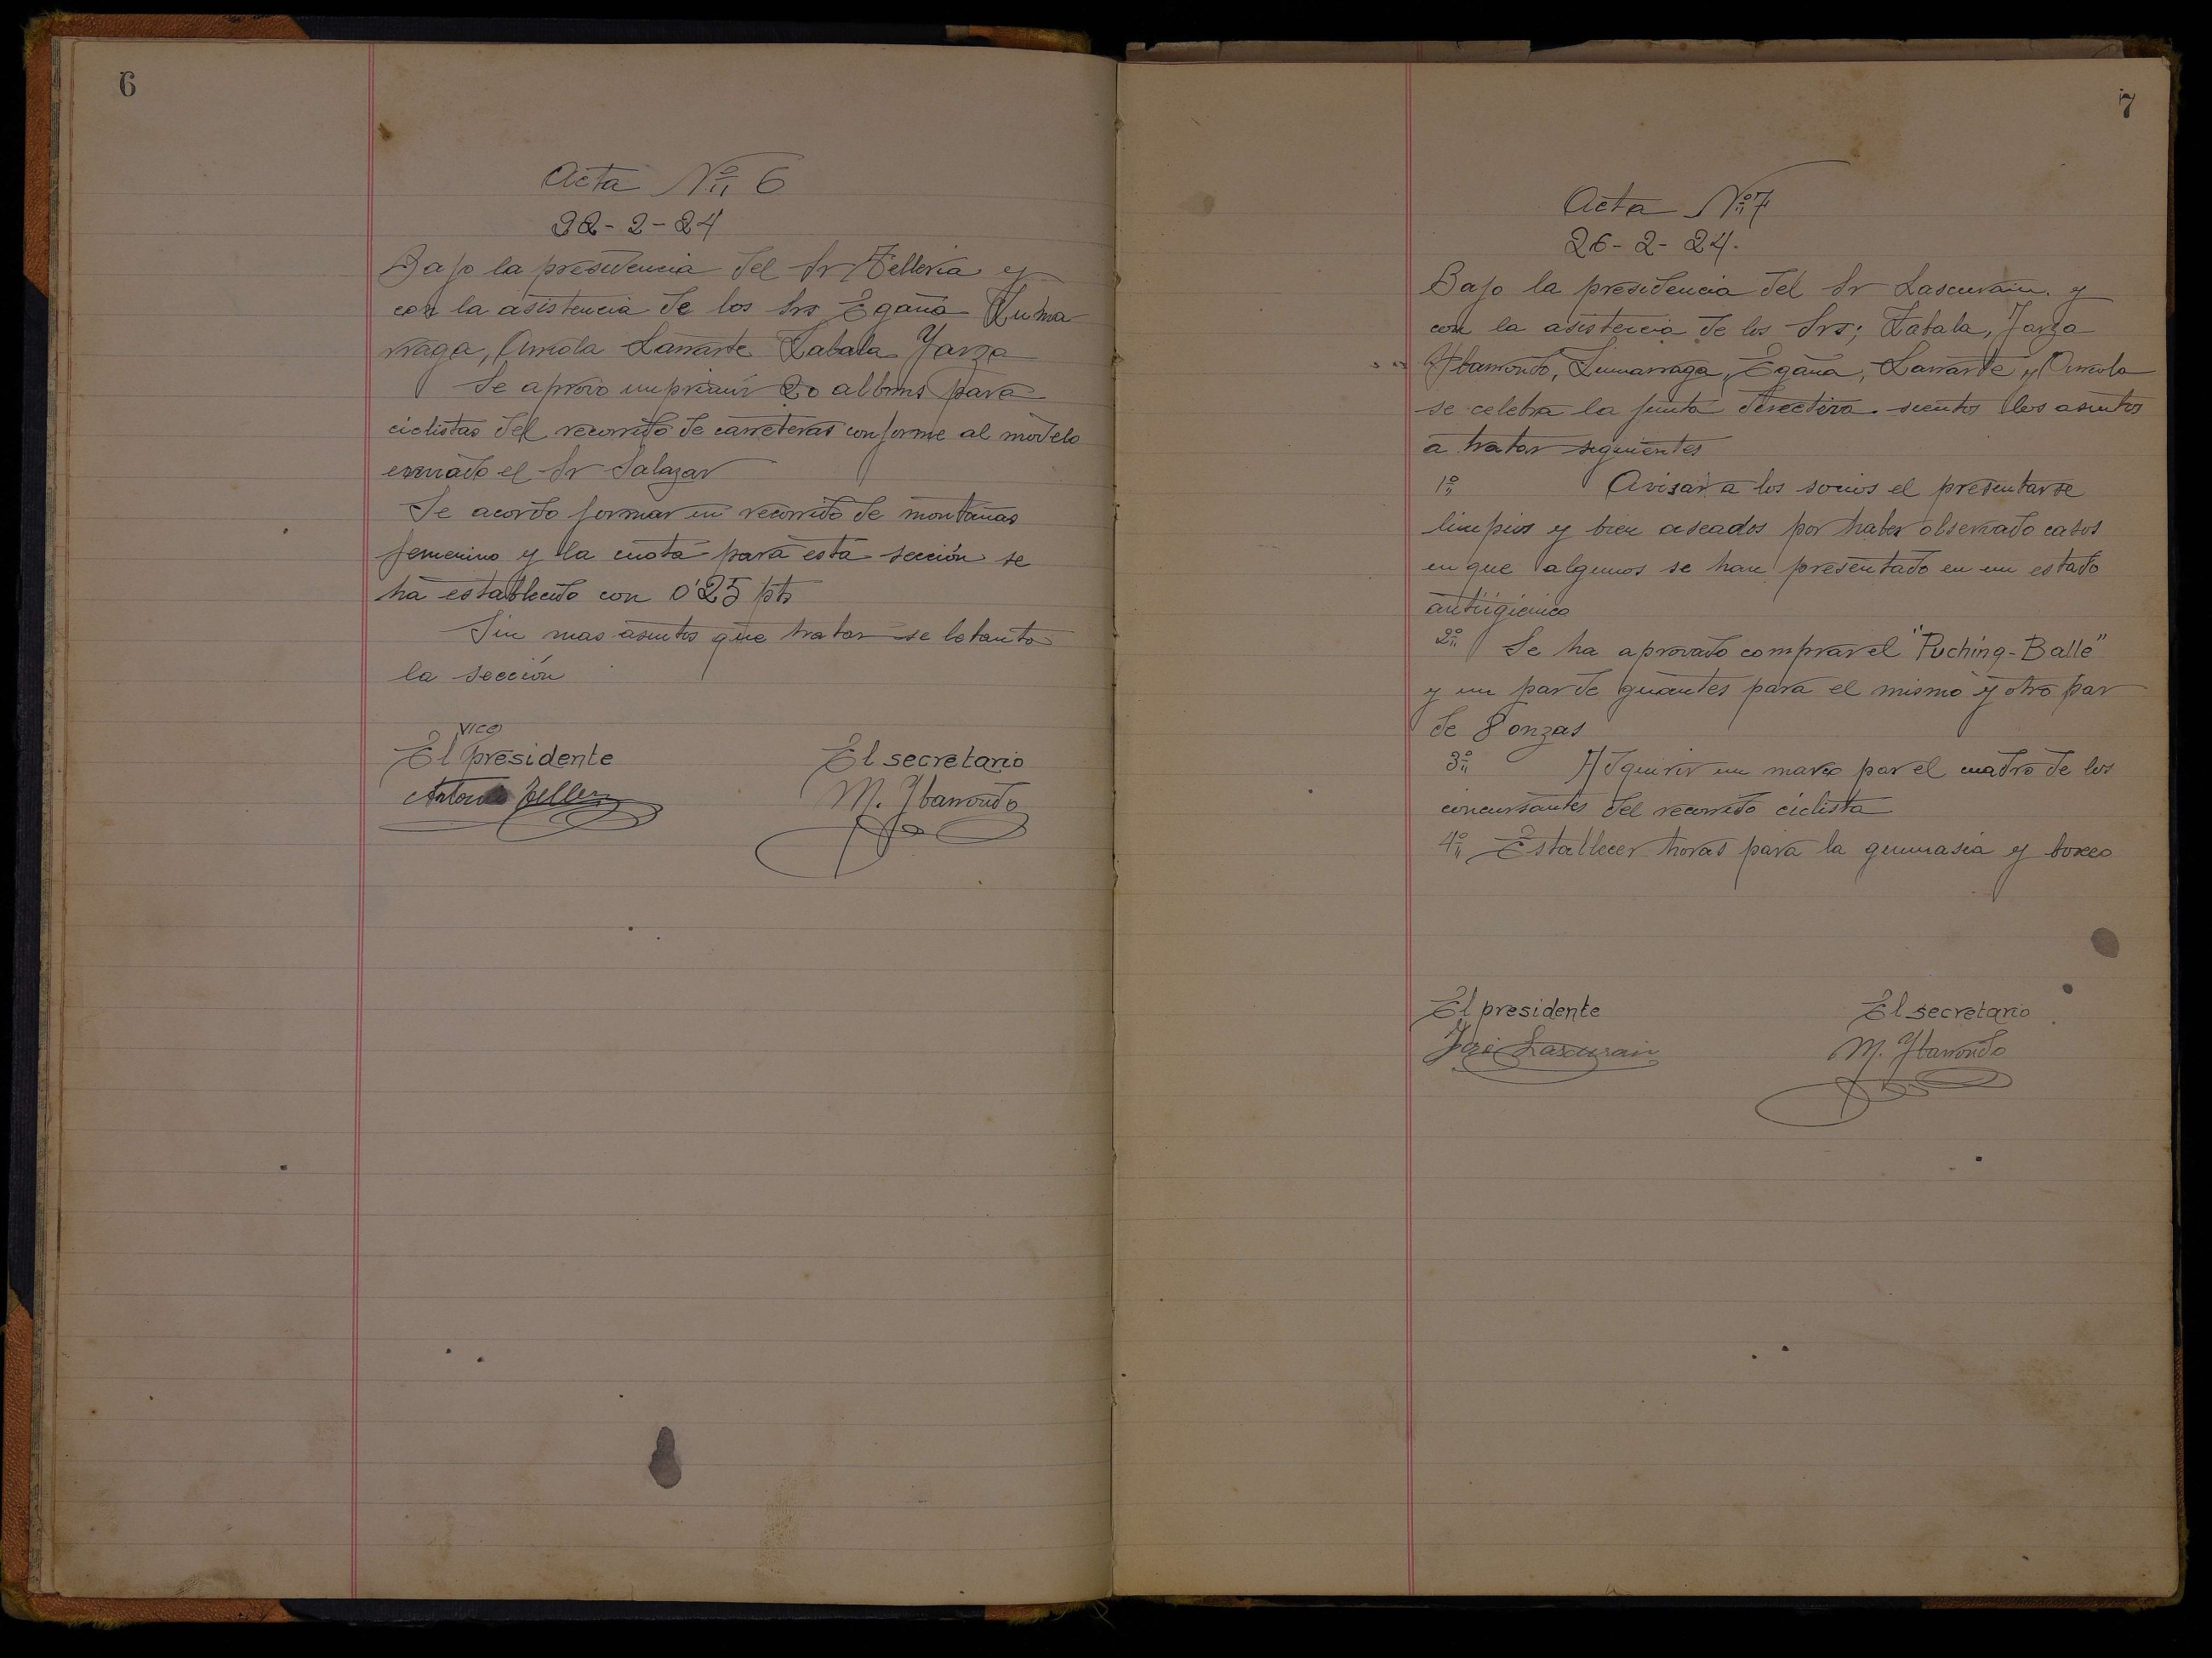 6
Acta Nº 6
22-2-24
Bajo la presidencia del Sr Telleria y
con la asistencia de los Srs Egaña Zuma-
rraga, Arriola Larrarte Zabala Yarza
Se aprovo imprimir 20 albums para
ciclistas del recorrido de carreteras conforme al modelo
enviado el Sr Salazar
Se acordo formar un recorrido de montañas
femenino y la cuota para esta sección se
ha establecido con 0'25 pts
Sin mas asuntos que tratar se lebanto
la sección
vice
El presidente El secretario
Antonio Telleria M. Ybarrondo
7
Acta Nº 7
26-2-24.
Bajo la presidencia del Sr Lascurain y
con la asistencia de los Srs; Zabala, Yarza
Ybarrondo, Zumarraga, Egaña, Larrarte y Arriola
se celebra la junta directiva siento los asuntos
a tratar siguientes
1º Avisar a los socios el presentarse
limpios y bien aseados por haber observado casos
en que algunos se han presentado en un estado
antigienico
2º Se ha aprovado comprar el "Puching-Balle"
y un par de guantes para el mismo y otro par
de 8 onzas
3º Adquirir un marco par el cuadro de los
concursantes del recorrido ciclista
4º Establecer horas para la gimnasia y boxeo
El presidente El secretario
José Lascurain M. Ybarrondo